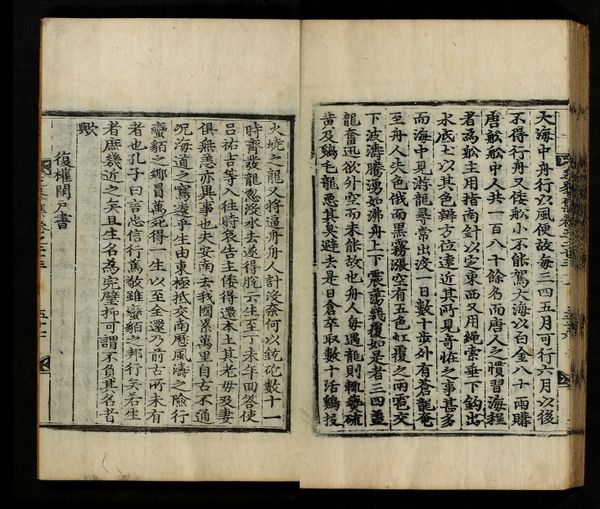 大海中舟行以風便故每三四五月可行六月以後
不得行舟又倭舩小不能駕大海以白金八十兩購
唐舩舩中人共一百八十餘名而唐人之慣習海程
者為舩主用指南針以定東西又用繩索垂下鉤出
水底土以其色辨方位遠近其所見奇恠之事甚多
而海中見游龍尋常出沒一日數十步外有蒼龍奄
至舟人失色俄而黑霧漲空有五色虹覆之雨雹交
下波濤騰湧如沸舟上下震蕩幾覆如是者三四盖
龍奮迅欲外空而未能故也舟人每遇龍則輒爇硫
黃及鷄毛龍惡其臭避去是日倉卒取數十活鷄投
火燒之龍又將逼舟舟人計沒奈何以銃砲數十一
時齊發龍忽沒水去遂得脫云生至丁未年回答使
呂祐吉等入徃時哀告主倭得還本土其老母及妻
俱無恙亦異事也夫安南去我國累萬里自古不通
况海道之寫遠乎生由東極抵交南歷風濤之險行
蠻貊之鄉冒萬死得一生以至全還乃前古所未有
者也孔子曰言忠信行篤敬雖蠻貊之邦行矣若生
者庶幾近之矣且生名為完璧抑可謂不負其名者
歟
復權關尸書